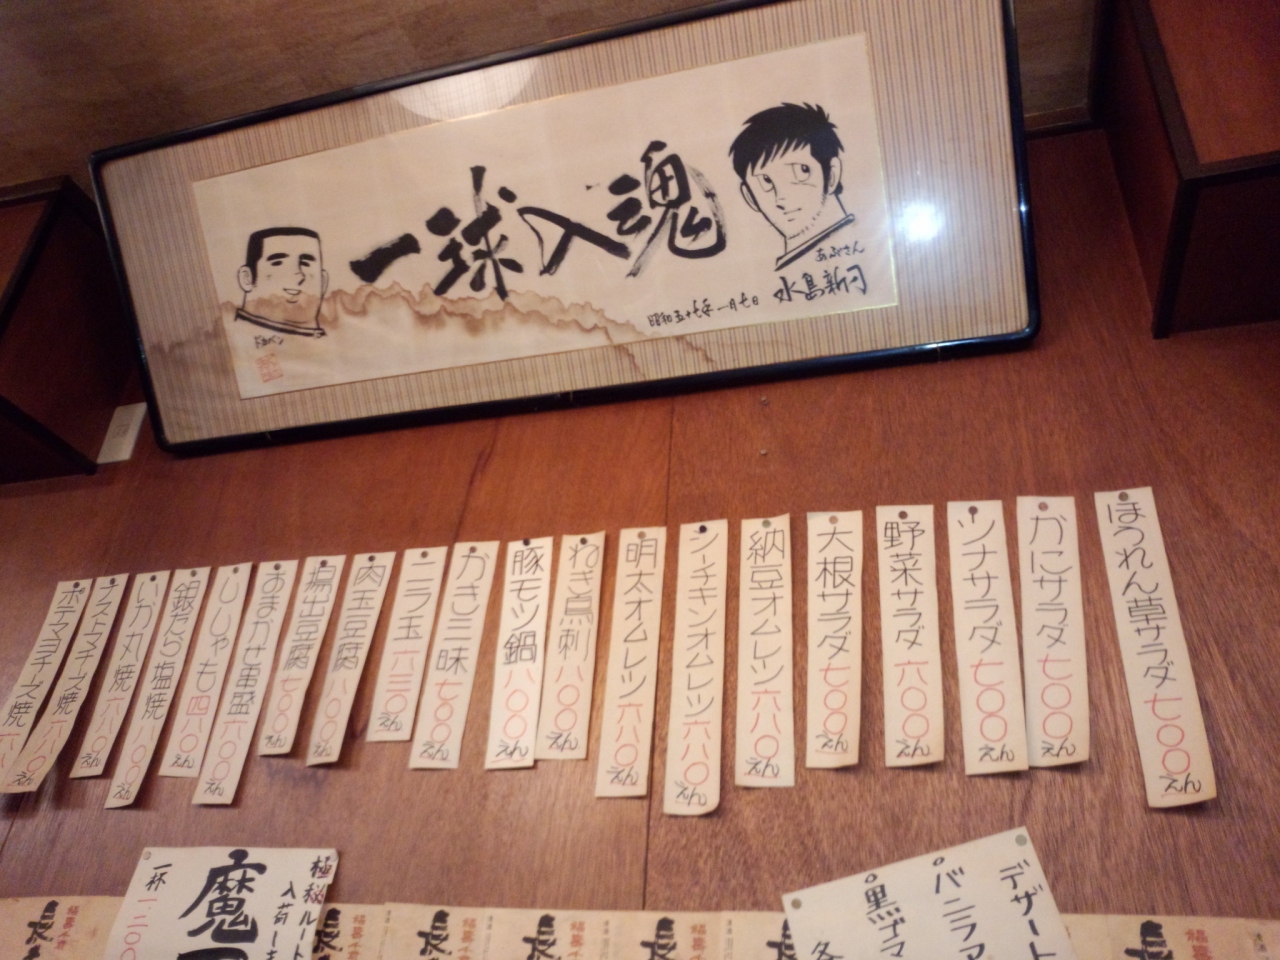 一球入魂
ドカベン
あぶさん
水島新司
昭和五十七年一月七日
ほうれん草サラダ七〇〇えん
かにサラダ七〇〇えん
ツナサラダ七〇〇えん
野菜サラダ六〇〇えん
大根サラダ七〇〇えん
納豆オムレツ六八〇えん
シーチキンオムレツ六八〇えん
明太オムレツ六八〇えん
ねぎ鳥刺八〇〇えん
豚モツ鍋八〇〇えん
かき三昧七〇〇えん
ニラ玉六三〇えん
肉玉豆腐八〇〇えん
揚出豆腐七〇〇えん
おまかせ串盛六〇〇えん
ししゃも四八〇えん
銀だら塩焼八〇〇えん
いか丸焼六八〇えん
ナストマチーズ焼六八〇えん
ポテマヨチーズ焼
デザート
バニラア
黒ゴマ
各
極秘ルート
入荷し
魔
一杯一二〇〇